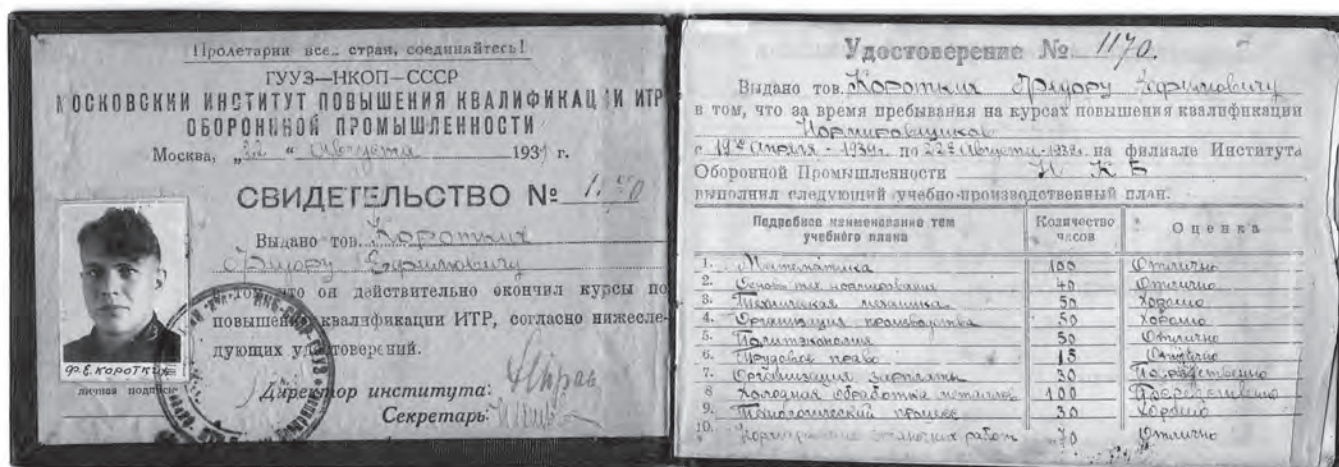 Пролетарии всех стран, соединяйтесь!
ГУУЗ—НКОП—СССР
МОСКОВСКИЙ ИНСТИТУТ ПОВЫШЕНИЯ КВАЛИФИКАЦИИ ИТР
ОБОРОННОЙ ПРОМЫШЛЕННОСТИ
Москва, „22“ Августа 1939 г.
СВИДЕТЕЛЬСТВО №
Выдано тов. Коротких
Фёдору Ефимовичу
в том, что он действительно окончил курсы по
повышению квалификации ИТР, согласно нижесле-
дующих удостоверений.
Ф.Е. Коротких
личная подпись
Директор института:
Секретарь:
Удостоверение № 1170.
Выдано тов. Коротких Фёдору Ефимовичу
в том, что за время пребывания на курсах повышения квалификации
Нормировщиков
с 19го апреля - 1939г. по 22е Августа - 1939г. на филиале Института
Оборонной Промышленности
выполнил следующий учебно-производственный план.
Подробное наименование тем учебного плана Количество часов Оценка
1. Математика 100 Отлично
2. Основы тех. нормирования 40 Отлично
3. Техническая механика 50 Хорошо
4. Организация производства 50 Хорошо
5. Политэкономия 50 Отлично
6. Трудовое право 15 Отлично
7. Организация зарплаты 30 Посредственно
8 Холодная обработка металлов 100 Посредственно
9. Технологический процесс 30 Хорошо
10. Нормирование станочных работ 70 Отлично